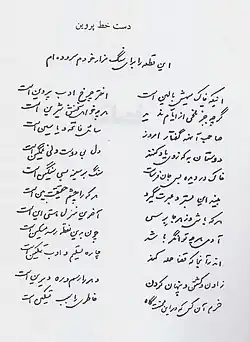 دست خط پروین
این قطعه را برای سنگ مزار خودم سروده‌ام
اینکه خاک سیهش بالین است
اختر چرخ ادب پروین است
گرچه جز تلخی از ایام ندید
هر چه خواهی سخنش شیرین است
صاحب آنهمه گفتار امروز
سائل فاتحه و یاسین است
دوستان به که ز وی یاد کنند
دل بی دوست دلی غمگین است
خاک در دیده بسی جان فرساست
سنگ بر سینه بسی سنگین است
بیند این بستر و عبرت گیرد
هر که را چشم حقیقت بین است
هر که باشی و ز هر جا برسی
آخرین منزل هستی این است
آدمی هر چه توانگر باشد
چون بدین نقطه رسد مسکین است
اندر آنجا که قضا حمله کند
چاره تسلیم و ادب تمکین است
زادن و کشتن و پنهان کردن
دهر را رسم و ره دیرین است
خرم آن کس که در این محنت‌گاه
خاطری را سبب تسکین است